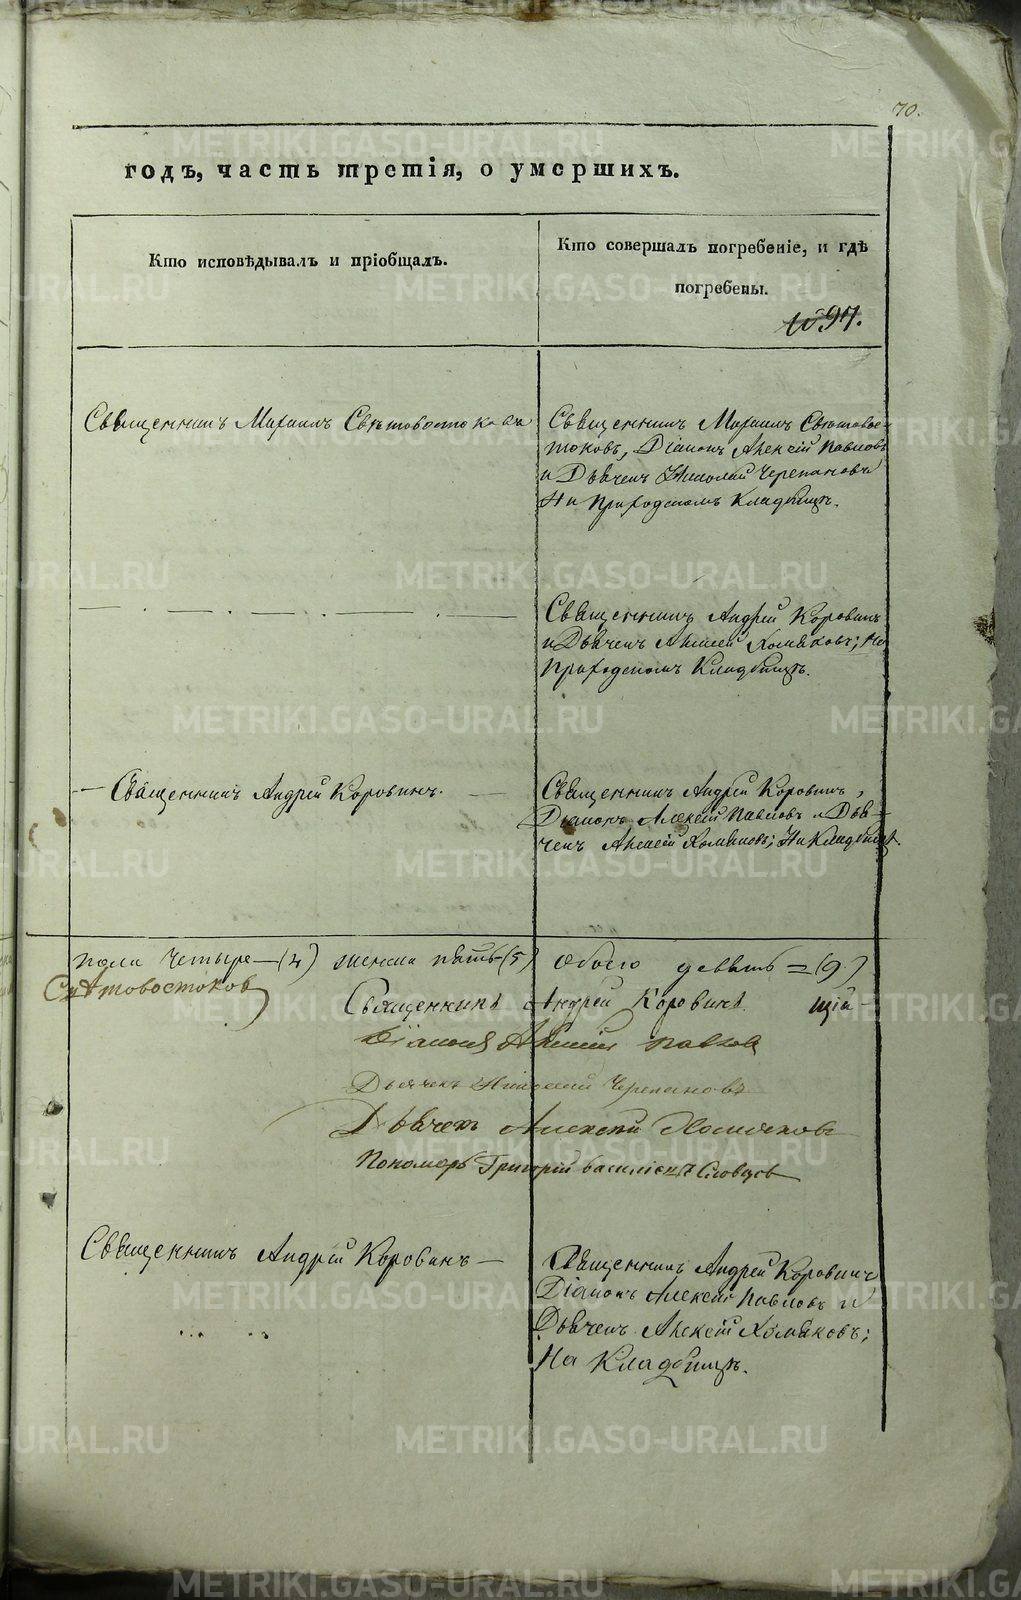 70.
годъ, часть третія, о умершихъ.
Кто исповѣдывалъ и пріобщалъ.
Кто совершалъ погребеніе, и гдѣ
погребены.
97.
Священникъ Михаилъ Свѣтовостоковъ
Священникъ Михаилъ Свѣтовос-
токовъ, Діаконъ Алексій Павловъ
и Дьячекъ Николай Черепановъ
На Приходскомъ Кладбищѣ.
Священникъ Андрей Коровинъ
и Дьячекъ Алексей Хомяковъ; На
Приходскомъ Кладбищѣ.
Священникъ Андрей Коровинъ.
Священникъ Андрей Коровинъ,
Діаконъ Алексій Павловъ и Дья-
чекъ Алексей Хомяковъ; На Кладбищѣ.
пола четыре—(4) женска пять—(5) обоего девять=(9.)
Свѣтовостоковъ
Священникъ Андрей Коровинъ щій
Діаконъ Алексій Павлов
Дьячекъ Николай Черепановъ
Дьячекъ Алексей Хомяковъ
Пономарь Григорій Словцовъ
Священникъ Андрей Коровинъ—
Священникъ Андрей Коровинъ
Діаконъ Алексій Павловъ и
Дьячекъ Алексей Хомяковъ;
На Кладбищѣ.
METRIKI.GASO-URAL.RU